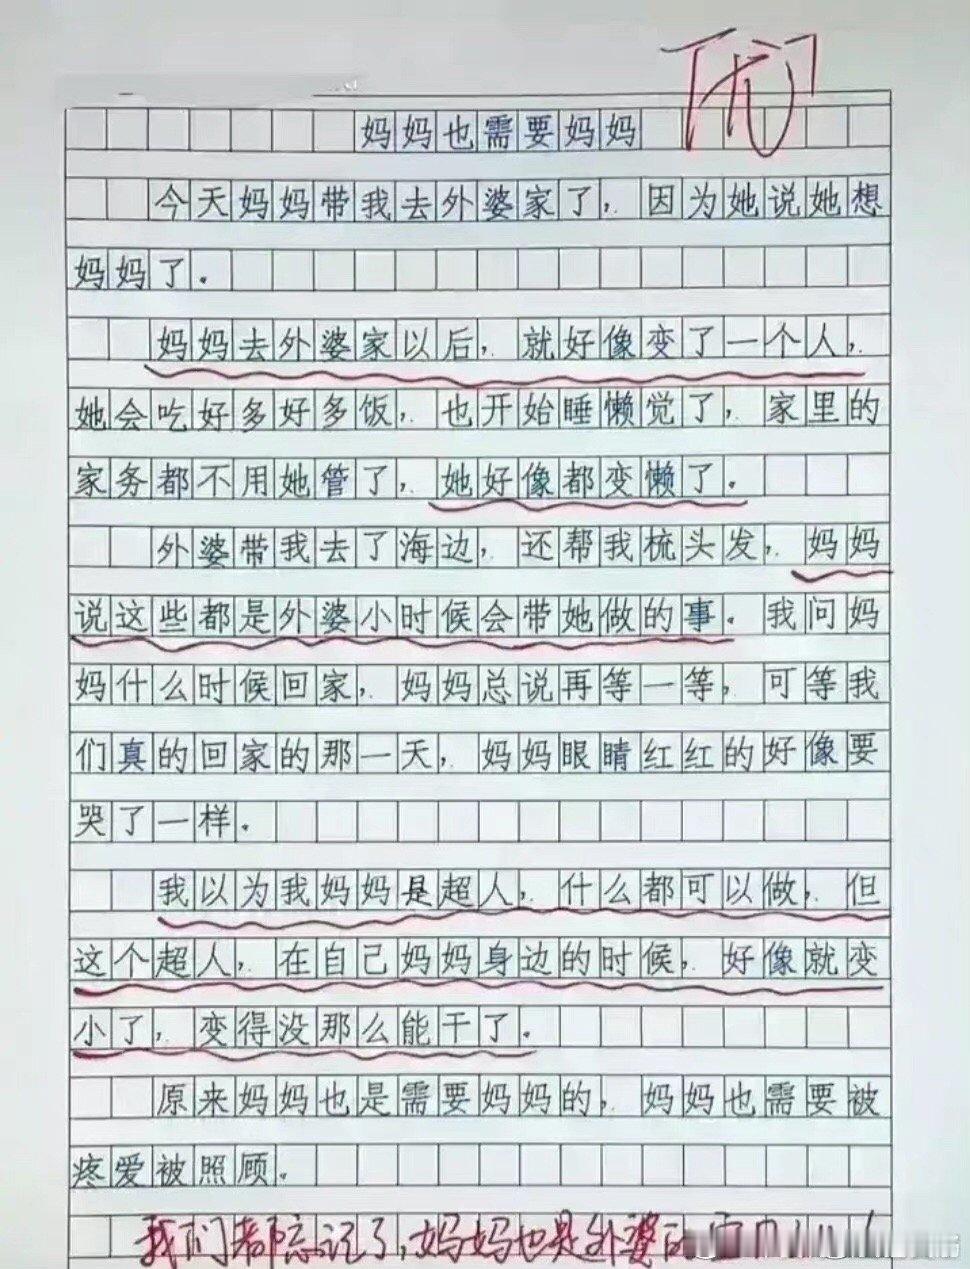 优
妈妈也需要妈妈
今天妈妈带我去外婆家了，因为她说她想
妈妈了。
妈妈去外婆家以后，就好像变了一个人，
她会吃好多好多饭，也开始睡懒觉了，家里的
家务都不用她管了，她好像都变懒了。
外婆带我去了海边，还帮我梳头发，妈妈
说这些都是外婆小时候会带她做的事。我问妈
妈什么时候回家，妈妈总说再等一等，可等我
们真的回家的那一天，妈妈眼睛红红的好像要
哭了一样。
我以为我妈妈是超人，什么都可以做，但
这个超人，在自己妈妈身边的时候，好像就变
小了，变得没那么能干了。
原来妈妈也是需要妈妈的，妈妈也需要被
疼爱被照顾。
我们都忘记了，妈妈也是外婆的